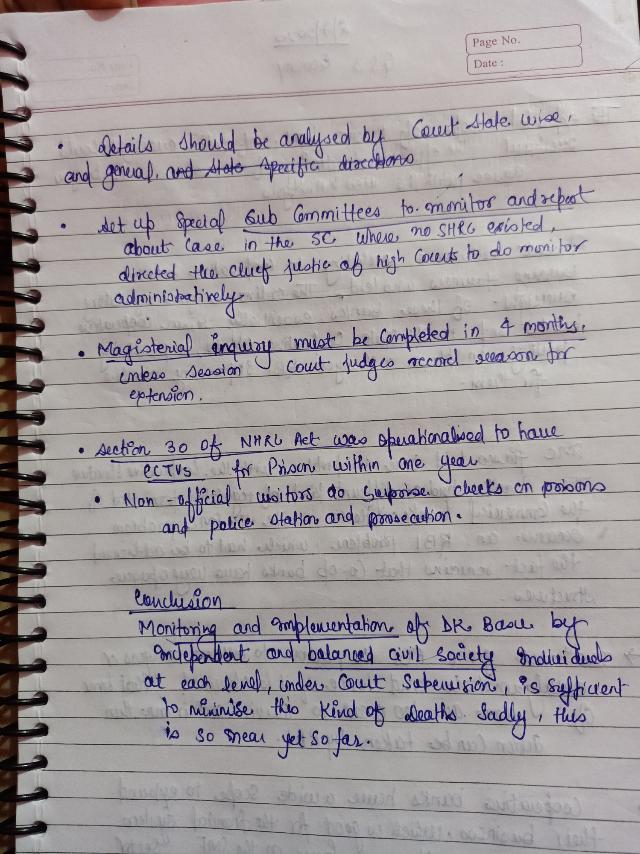 Page No.
Date :
• Details should be analysed by Court state wise,
and general, and state specific directions
• Set up Special Sub Committees to monitor and report
about case in the SC where no SHRC existed,
directed the chief justice of high Courts to do monitor
administratively
• Magisterial inquiry must be completed in 4 months,
unless session court judges record reason for
extension.
• Section 30 of NHRC Act was operationalised to have
CCTVs for Prison within one year
• Non-official visitors do surprise checks on prisons
and police station and prosecution.
Conclusion
Monitoring and implementation of DK Basu by
independent and balanced civil society individuals
at each level, under Court Supervision, is sufficient
to minimise this kind of deaths. Sadly, this
is so near yet so far.